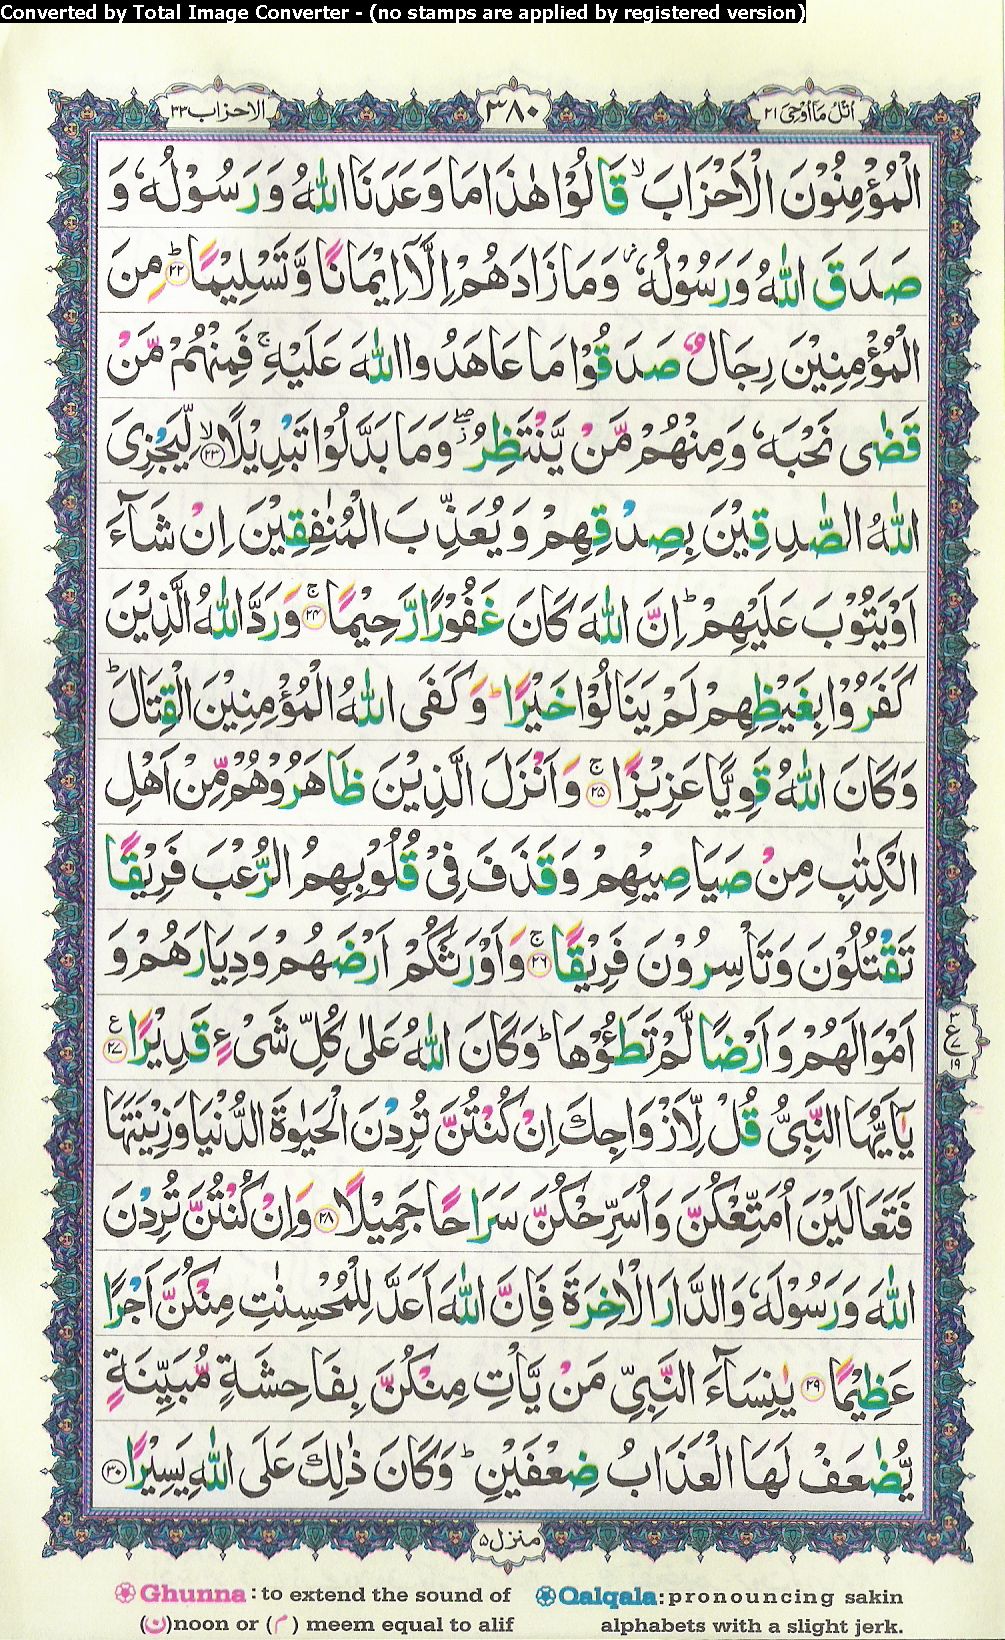 Converted by Total Image Converter - (no stamps are applied by registered version)
اتل ما اوحی ۲۱
۳۸۰
الاحزاب ۳۳
الْمُؤْمِنُوْنَ الْاَحْزَابَ ۙ قَالُوْا هٰذَا مَا وَعَدَنَا اللّٰهُ وَرَسُوْلُهٗ وَ
صَدَقَ اللّٰهُ وَرَسُوْلُهٗ ؗ وَمَا زَادَهُمْ اِلَّاۤ اِيْمَانًا وَّتَسْلِيْمًا ؕ ۲۲ مِنَ
الْمُؤْمِنِيْنَ رِجَالٌ صَدَقُوْا مَا عَاهَدُوا اللّٰهَ عَلَيْهِ ۚ فَمِنْهُمْ مَّنْ
قَضٰى نَحْبَهٗ وَمِنْهُمْ مَّنْ يَّنْتَظِرُ ۖؗ وَمَا بَدَّلُوْا تَبْدِيْلًا ۙ ۲۳ لِّيَجْزِىَ
اللّٰهُ الصّٰدِقِيْنَ بِصِدْقِهِمْ وَيُعَذِّبَ الْمُنٰفِقِيْنَ اِنْ شَآءَ
اَوْ يَتُوْبَ عَلَيْهِمْ ؕ اِنَّ اللّٰهَ كَانَ غَفُوْرًا رَّحِيْمًا ۚ ۲۴ وَرَدَّ اللّٰهُ الَّذِيْنَ
كَفَرُوْا بِغَيْظِهِمْ لَمْ يَنَالُوْا خَيْرًا ؕ وَكَفَى اللّٰهُ الْمُؤْمِنِيْنَ الْقِتَالَ ؕ
وَكَانَ اللّٰهُ قَوِيًّا عَزِيْزًا ۚ ۲۵ وَاَنْزَلَ الَّذِيْنَ ظَاهَرُوْهُمْ مِّنْ اَهْلِ
الْكِتٰبِ مِنْ صَيَاصِيْهِمْ وَقَذَفَ فِىْ قُلُوْبِهِمُ الرُّعْبَ فَرِيْقًا
تَقْتُلُوْنَ وَتَاْسِرُوْنَ فَرِيْقًا ۚ ۲۶ وَاَوْرَثَكُمْ اَرْضَهُمْ وَدِيَارَهُمْ وَ
اَمْوَالَهُمْ وَاَرْضًا لَّمْ تَطَـُٔوْهَا ؕ وَكَانَ اللّٰهُ عَلٰى كُلِّ شَىْءٍ قَدِيْرًا ع ۲۷
۳
ع ۷
۱۹
يٰۤاَيُّهَا النَّبِىُّ قُلْ لِّاَزْوَاجِكَ اِنْ كُنْتُنَّ تُرِدْنَ الْحَيٰوةَ الدُّنْيَا وَزِيْنَتَهَا
فَتَعَالَيْنَ اُمَتِّعْكُنَّ وَاُسَرِّحْكُنَّ سَرَاحًا جَمِيْلًا ۲۸ وَاِنْ كُنْتُنَّ تُرِدْنَ
اللّٰهَ وَرَسُوْلَهٗ وَالدَّارَ الْاٰخِرَةَ فَاِنَّ اللّٰهَ اَعَدَّ لِلْمُحْسِنٰتِ مِنْكُنَّ اَجْرًا
عَظِيْمًا ۲۹ يٰنِسَآءَ النَّبِىِّ مَنْ يَّاْتِ مِنْكُنَّ بِفَاحِشَةٍ مُّبَيِّنَةٍ
يُّضٰعَفْ لَهَا الْعَذَابُ ضِعْفَيْنِ ؕ وَكَانَ ذٰلِكَ عَلَى اللّٰهِ يَسِيْرًا ۳۰
منزل ۵
Ghunna : to extend the sound of
(ن)noon or (م) meem equal to alif
Qalqala: pronouncing sakin
alphabets with a slight jerk.